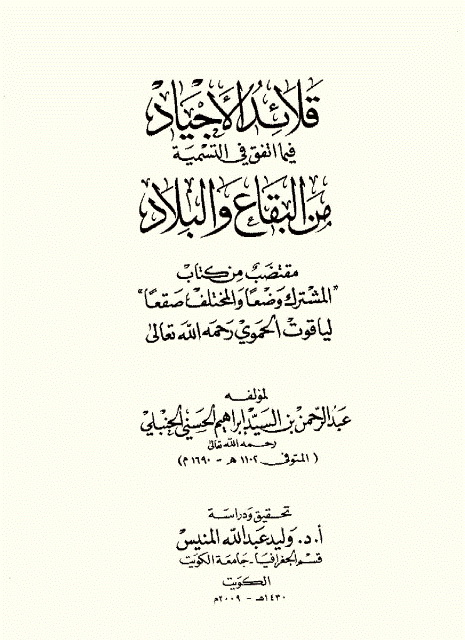 قلائد الأجياد
فيما اتفق في التسمية
من البقاع والبلاد
مقتضب من كتاب
"المشترك وضعًا والمختلف صقعًا"
لياقوت الحموي رحمه الله تعالى
لمؤلفه
عبد الرحمن بن السيد إبراهيم الحسني الحنبلي
رحمه الله تعالى
(المتوفى ١١٠٢ هـ - ١٦٩٠ م)
تحقيق ودراسة
أ. د. وليد عبد الله المنيس
قسم الجغرافيا - جامعة الكويت
الكويت
١٤٣٠هـ - ٢٠٠٩م